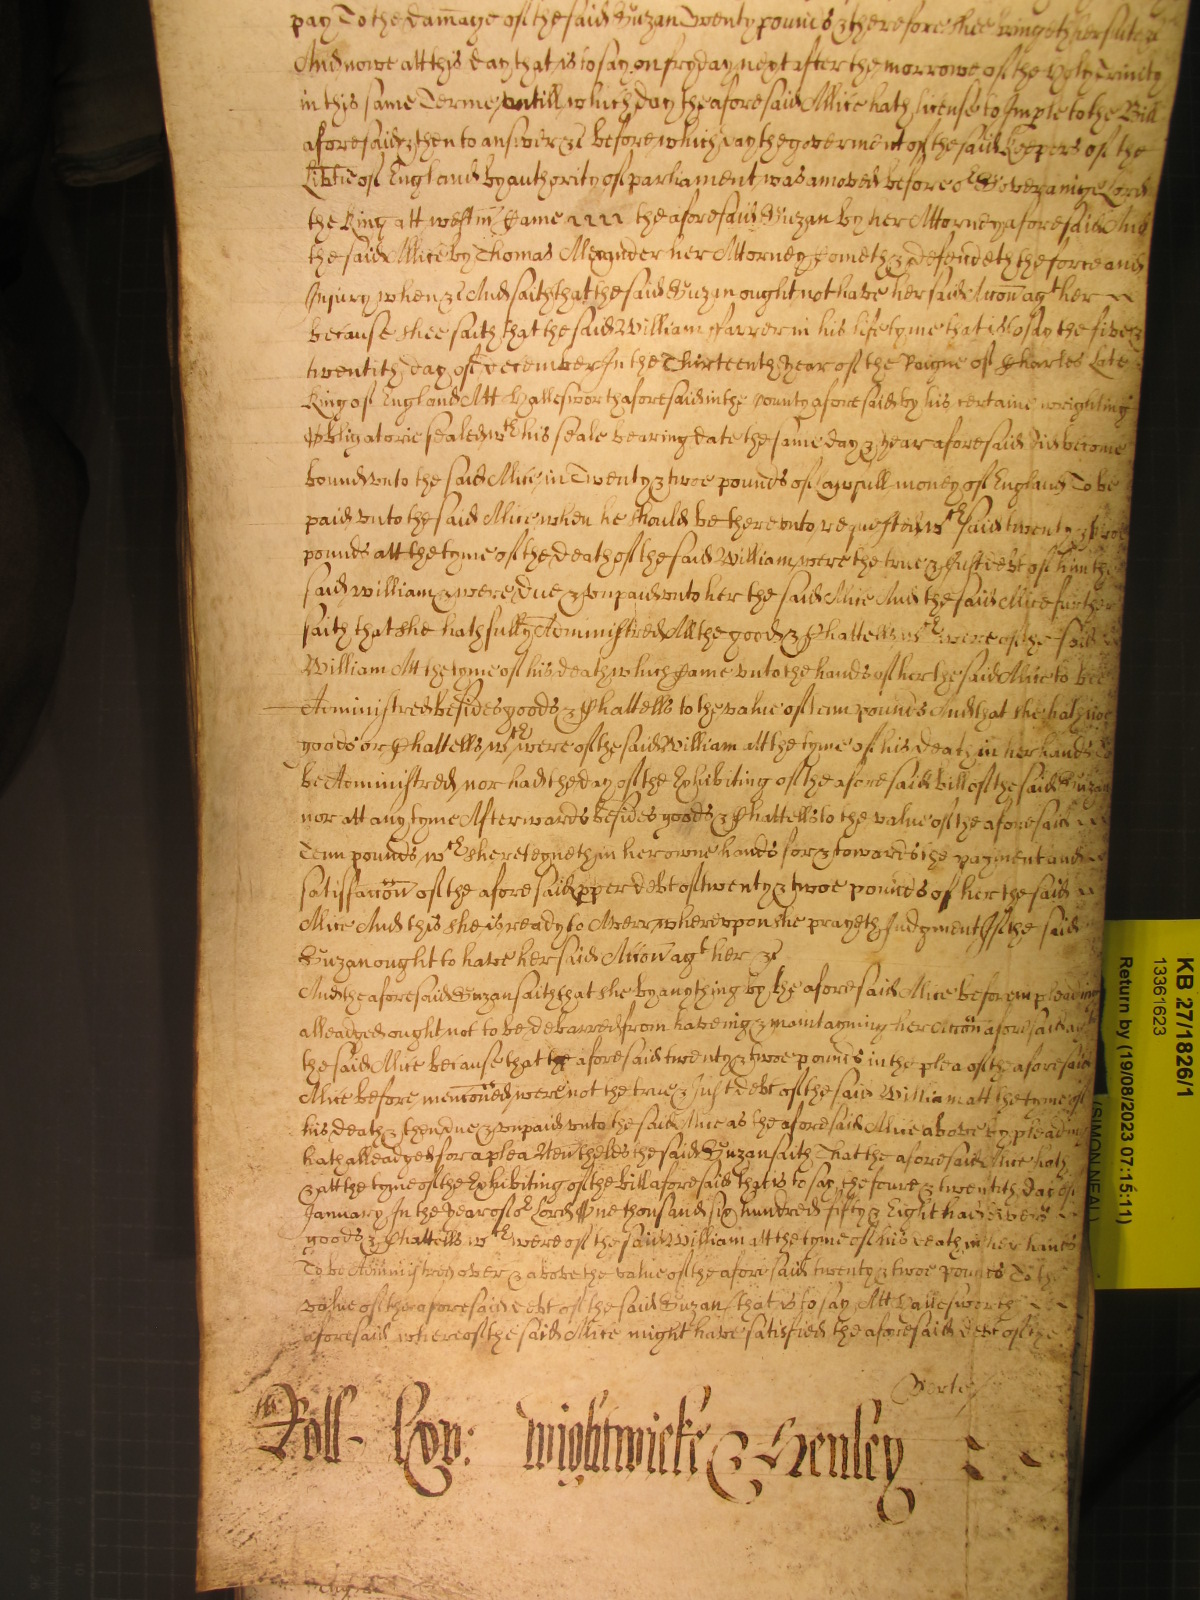 pay To the damage of the said Suzan Twenty pounds & therefore shee bringeth her sute &c
And nowe att this day that is to say on fryday next after the morrowe of the holy Trinity
in this same Terme, untill which day the aforesaid Allice hath license to Imple to the Bill
aforesaid & then to answer &c before which day the goverment of the said keepers of the
Libtie of England by authority of parliament was amoved before or Soveraigne Lord
the King att Westmr Came the aforesaid Suzan by her Attorney aforesaid And
the said Allice by Thomas Alexander her Attorney Cometh & defendeth the force and
Injury when &c And saith that the said Suzan ought not have her said Accon agt her
because shee saith that the said William Farrer in his lifetyme that is to say the five &
twentith day of December In the Thirteenth year of the Raigne of Charles Late
King of England Att Hallesworth aforesaid in the County aforesaid by his certaine wrighting
Obligatorie sealed wth his seale bearing date the same day & year aforesaid did become
bound unto the said Allice in Twenty & twoe pounds of lawfull money of England To be
paid unto the said Allice when he should be thereunto requested wch said twenty & twoe
pounds att the tyme of the death of the said William were the true & Just debt of him the
said William & were due & unpaid unto her the said Allice And the said Allice further
saith that she hath fully Administred All the goods & Chattells wch were of the said
William Att the tyme of his death which Came unto the hands of her the said Allice to bee
Administred besides goods & Chattells to the value of Tenn pounds And that she hath noe
goods or Chattells wch were of the said William att the tyme of his death in her hands To
be Administred nor had the day of the Exhibiting of the aforesaid bill of the said Suzan
nor att any tyme Afterwards besides goods & Chattells to the value of the aforesaid
Tenn pounds wch she reteyneth in her owne hands for & towards the payment and
satisfaccon of the aforesaid pper debt of twenty & twoe pounds of her the said
Allice And this she is ready to Averr whereupon she prayeth Judgment If the said
Suzan ought to have her said Accon agt her &c
And the aforesaid Suzan saith that she by any thing by the aforesaid Allice before in pleading
alleadged ought not to be debarred from haveing & maintayning her accon aforesaid agt
the said Allice because that the aforesaid twenty & twoe pounds in the plea of the aforesaid
Allice before menconed were not the true & Just debt of the said William att the tyme of
his death & then due & unpaid unto the said Allice as the aforesaid Allice above by pleading
hath alleadged for a plea Nevtheles the said Suzan saith That the aforesaid Allice hath
& att the tyme of the Exhibiting of the bill aforesaid that is to say the foure & twentith day of
January In the Year of or Lord One thousand six hundred fifty & Eight had divers
goods & Chattells wch were of the said William att the tyme of his death in her hands
To be Administred over & above the value of the aforesaid twenty & twoe pounds To the
value of the aforesaid debt of the said Suzan that is to say Att Hallesworth
aforesaid whereof the said Allice might have satisfied the aforesaid debt of the
Roll Wightwicke & Henley
KB 27/1826/1
13361623
Return by (19/08/2023 07:15:11)
(SIMON NEAL)